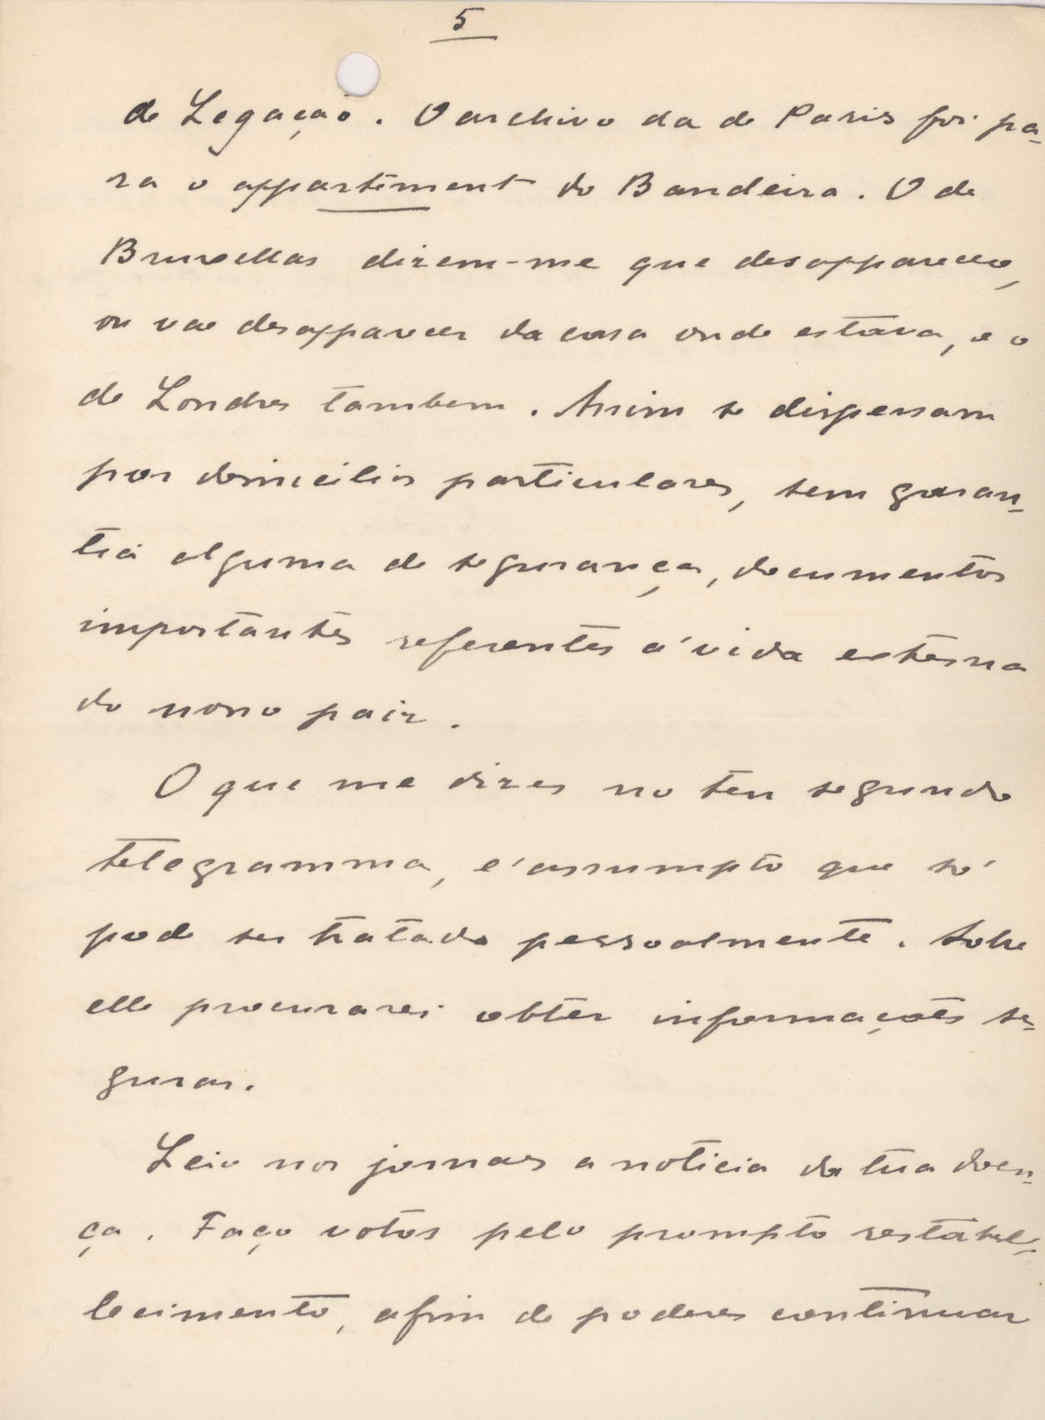 5
de Legação. O archivo da de Paris foi pa-
ra o appartement do Bandeira. O de
Bruxellas dizem-me que desappareceo,
ou vae desapparecer da casa onde estava, e o
de Londres tambem. Assim se dispersam
por domicilios particulares, sem garan-
tia alguma de segurança, documentos
importantes referentes á vida externa
do nosso paiz.
O que me dizes no teu segundo
telegramma, é assumpto que só
pode ser tratado pessoalmente. Sobre
elle procurarei obter informações se-
guras.
Leio nos jornaes a noticia da tua doen-
ça. Faço votos pelo prompto restabel-
lecimento, afim de poderes continuar